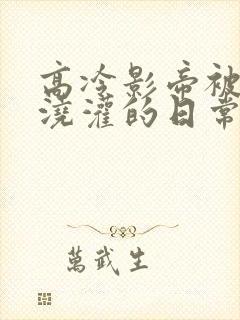 高冷影帝被
浇灌的日常
萬武生